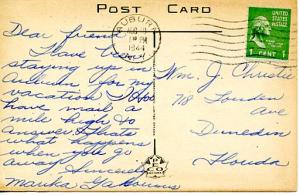 POST CARD
AUBURN
1944
UNITED STATES
POSTAGE
1 CENT 1
Dear friend
Have been
staying up in
Auburn for my
vacation I
have mail a
mile high to
answer. That's
what happens
when you go
away. Sincerely,
Wm. J. Christie
78 Louden
Ave
Dunedin
Florida